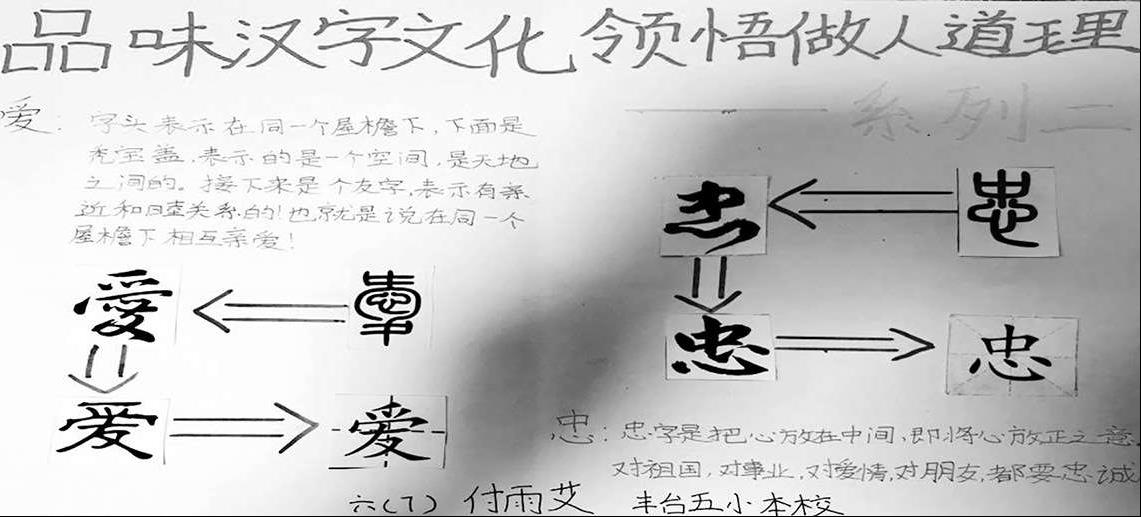 品味汉字文化 领悟做人道理
系列二
爱：字头表示在同一个屋檐下，下面是
秃宝盖，表示的是一个空间，是天地
之间的。接下来是个友字，表示有亲
近和睦关系的！也就是说在同一个
屋檐下相互亲爱！
愛
爱
爱
忠
忠
忠
忠
忠：忠字是把心放在中间，即将心放正之意
对祖国，对事业，对爱情，对朋友，都要忠诚
六(7) 付雨艾 丰台五小本校